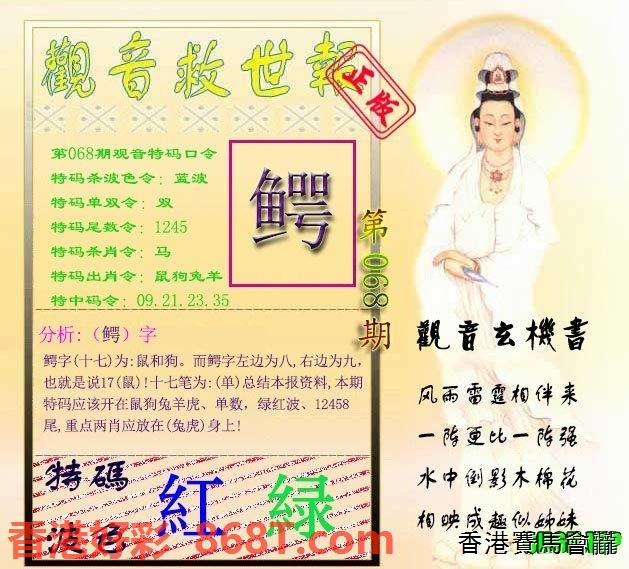 觀音救世報
正版
第068期观音特码口令
特码杀波色令：蓝波
特码单双令：双
特码尾数令：1245
特码杀肖令：马
特码出肖令：鼠狗兔羊
特中码令：09.21.23.35
鳄
第068期
分析:（鳄）字
鳄字(十七)为:鼠和狗。而鳄字左边为八,右边为九,
也就是说17(鼠)!十七笔为:(单)总结本报资料,本期
特码应该开在鼠狗兔羊虎、单数，绿红波、12458
尾,重点两肖应放在(兔虎)身上!
特碼
波色
紅 緑
觀音玄機書
风雨雷霆相伴来
一阵更比一阵强
水中倒影木棉花
相映成趣似姊妹
香港好彩 868T.com
香港賽馬會